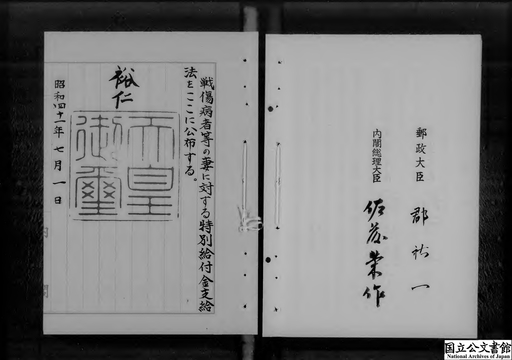 戦傷病者等の妻に対する特別給付金支給
法をここに公布する。
裕仁
天皇
御璽
昭和四十一年七月一日
郵政大臣 郡祐一
内閣総理大臣 佐藤榮作
国立公文書館
National Archives of Japan